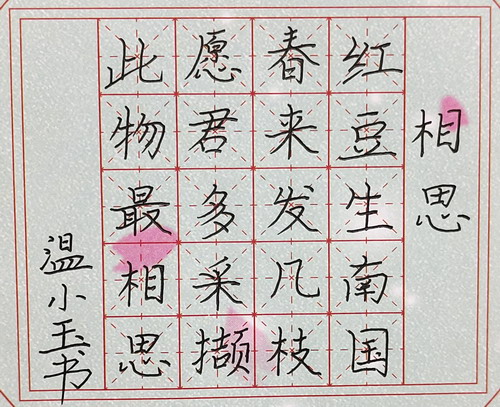 相思
红豆生南国
春来发几枝
愿君多采撷
此物最相思
温小玉书